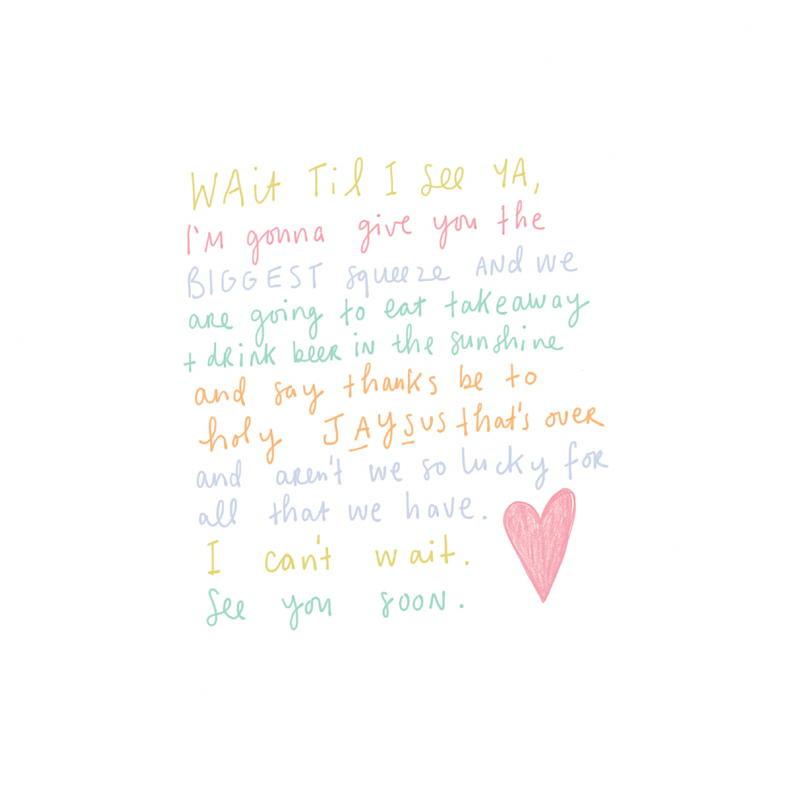 WAit Til I see YA,
I'M gonna give you the
BIGGEST squeeze AND we
are going to eat takeaway
+ dRiNK beeR iN the sunshine
and say thanks be to
holy JAYSUS that's over
and aren't we so lucky for
all that we have.
I can't wait.
See you soon.